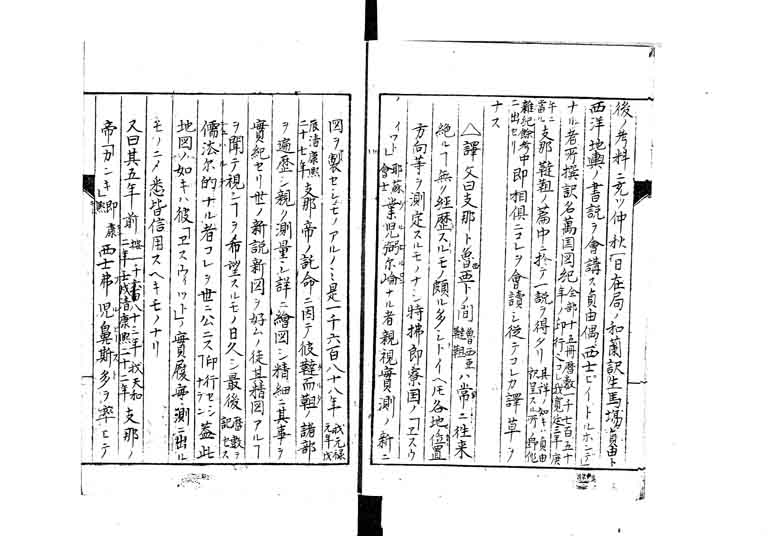 後ノ考料ニ充ツ仲秋一日在局ノ和蘭訳生馬塲貞由ト
西洋地輿ノ書説ヲ會講ス貞由偶西士
ナル者所撰訳名萬国図紀全部十五冊暦数一千七百五十
年ニ印行
當ル支那韃靼ノ篇中ニ於テ一説ヲ得タリ
雜紀餘考中即相倶ニコレヲ會讀シ従テコレカ譯草ヲ
ニ出セリ
ナス
△譯文曰支那ト魯西亜ノ間魯西亜ハ常ニ往来
韃靼
絶ルヿ無ク経歴スルモノ頗ル多シトイヘ𪜈各地位置
方向等ヲ測定スルモノナシ特拂郎察国ノ「ヱスウ
イフト」耶蘇會士業児弼尓崙ナル者親視實測ノ新ニ
図ヲ製セシモノアルノミ是一千六百八十八年我元禄元年戊
辰清康熙二十七年支那帝ノ託命ニ因テ彼韃而靼ノ諸部
ヲ遍歴シ親ク測量シ詳ニ繪図シ精細ニ其事ヲ
實紀セリ世ノ新説新図ヲ好ムノ徒其精図アルヿ
ヲ聞テ視ンヿヲ希望スルモノ日久シ最後暦数ヲ記セス
儒法尓的ナル者コレヲ世ニ公ニス印行セシナラン蓋此
地図ノ如キハ彼「ヱスウィット」ノ實履實測ニ出ル
モノニノ悉皆信用スヘキモノナリ
又曰其五年前一千六百八十二年我天和二年壬戌清康熙二十一年支那ノ
帝「カンキ」即康熙西士弗児鼻斯多ヲ率ヒテ